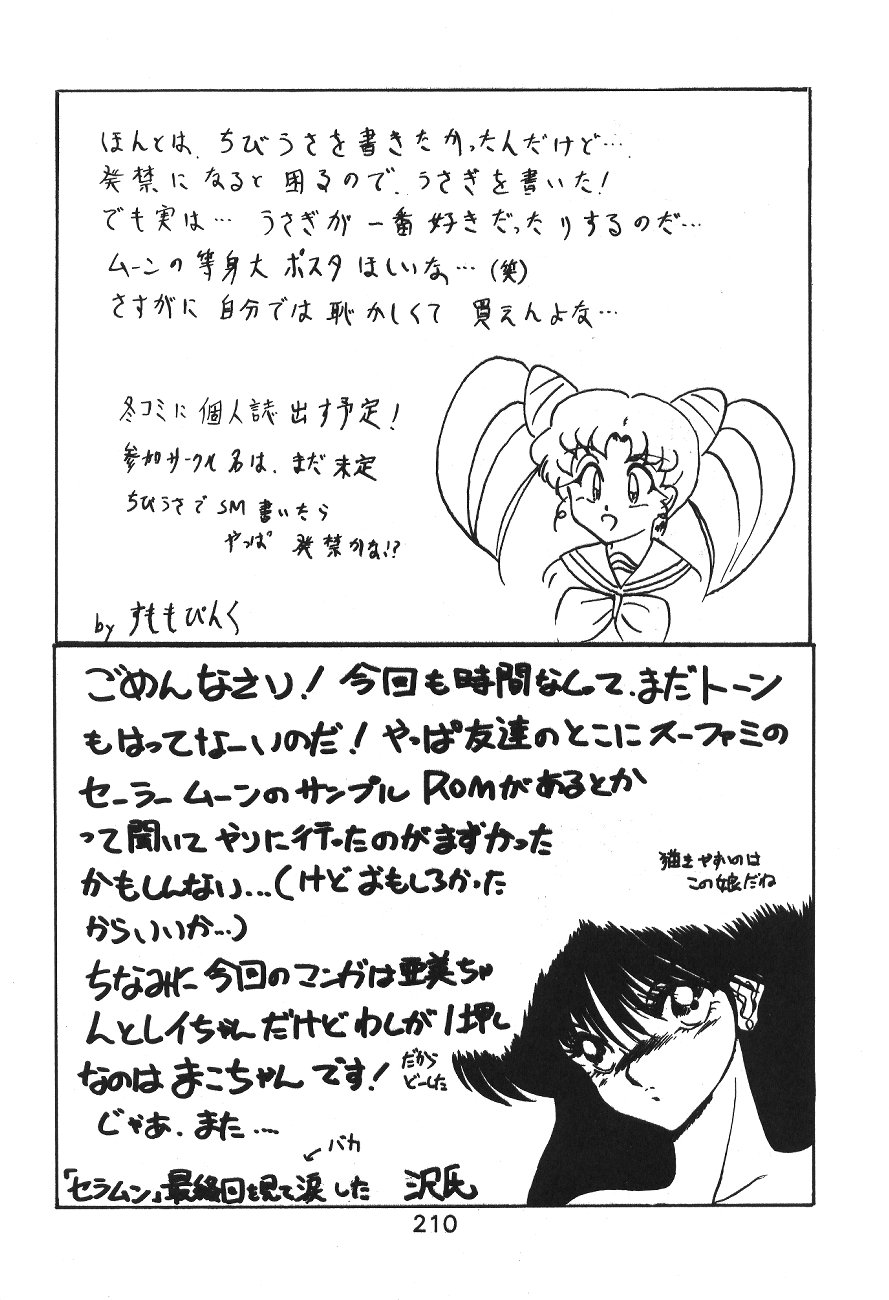 ほんとは、ちびうさを書きたかったんだけど…
発禁になると困るので、うさぎを書いた!
でも実は… うさぎが一番好きだったりするのだ…
ムーンの等身大ポスタほしいな…(笑)
さすがに自分では恥かしくて買えんよな…
冬コミに個人誌出す予定!
参加サークル名は、まだ未定
ちびうさでSM書いたら
やっぱ発禁かな!?
by すももぴんく
ごめんなさい!今回も時間なくって、まだトーン
もはってなーいのだ!やっぱ友達のとこにスーファミの
セーラームーンのサンプルROMがあるとか
って聞いてやりに行ったのがまずかった
かもしんない…(けどおもしろかった
からいいか…)
猫きやすいのは
この娘だね
ちなみに今回のマンガは亜美ちゃ
んとレイちゃんだけどわしが1押し
なのはまこちゃんです!
だから
どーした
じゃあ、また…
バカ
「セラムン」最終回を見て涙した 沢氏
210